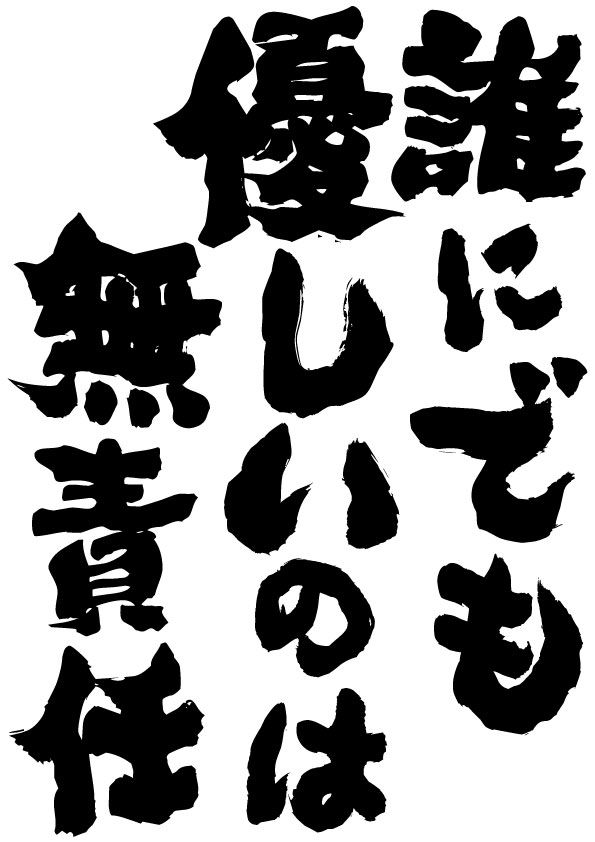 誰にでも
優しいのは
無責任